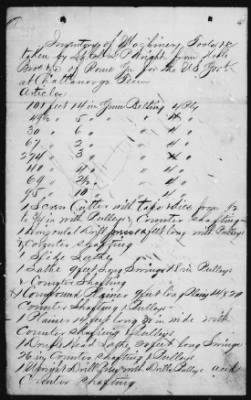 Inventory of Machinery Tools &c
taken by Captain Wright from
Bro & Co of Rome Ga for the U.S. Govt
at Chattanooga Tenn
Articles
101 feet 14 in Gum Belting 4 Ply
492 " 5 " " 4 "
30 " 6 " " " "
67 " 2 " " "
274 " 3 " " 4 "
140 " 4 " " 4 "
69 " 2½ " " "
95 " 10 " " 4 "
1 Screw Cutter with taps & dies from
to in with Pulleys & Counter Shafting
1 Horizontal Drill feet long with Pulleys
& Counter Shafting
1 Spike Lathe
1 Lathe 9 feet long Swings 18 in Pulleys
& Counter Shafting
1 Compound Planer feet long Planes 14 x 20
Counter Shafting & Pulleys
1 Planer 14 feet long in wide with
Counter Shafting & Pulleys
1 Head Lathe 20 feet long Swings
26 in Counter Shafting & Pulleys
1 Upright Drill with Drills Pulleys and
Counter Shafting